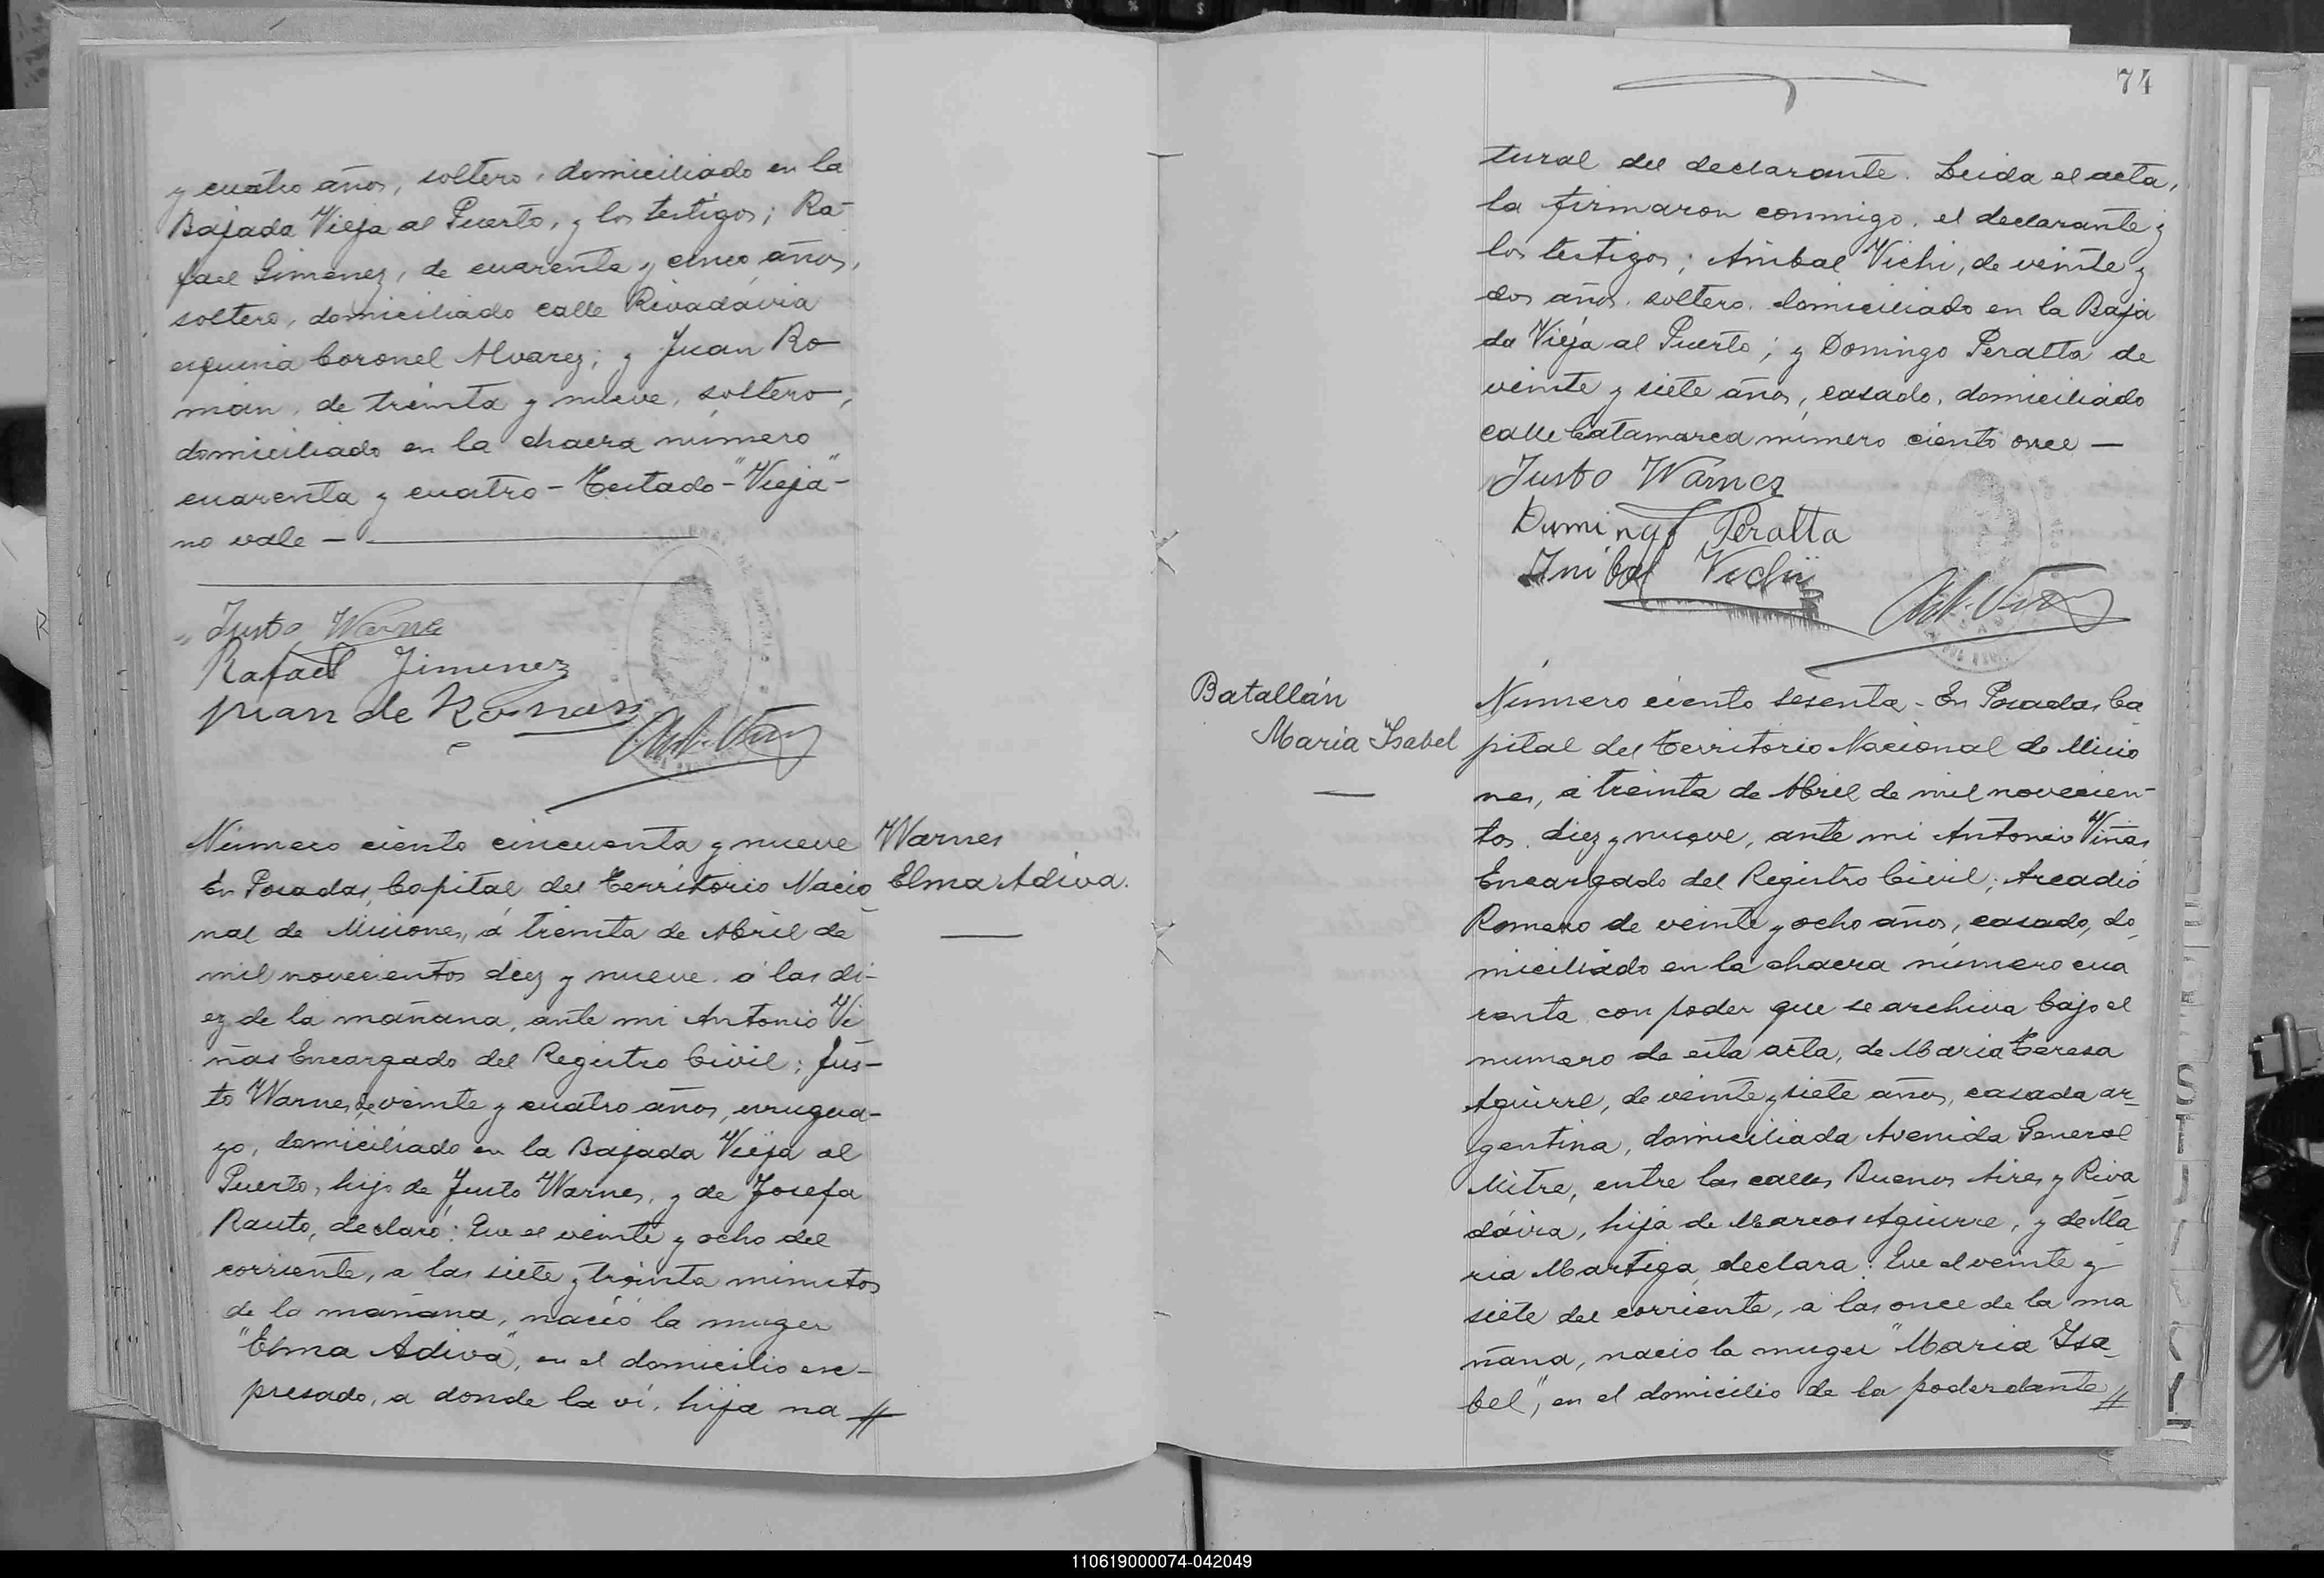 y cuatro años, soltero, domiciliado en la
Bajada Vieja al Puerto, y los testigos; Ra-
fael Gimenez, de cuarenta y cinco años,
soltero, domiciliado calle Rivadávia
esquina Coronel Alvarez; y Juan Ro-
mán, de treinta y nueve, soltero,
domiciliado en la chacra número
cuarenta y cuatro - Testado - "Vieja" -
no vale -
Justo Warne
Rafael Jimenez
Juan de Roman
Número ciento cincuenta y nueve
En Posadas, Capital del Territorio Nacio
nal de Misiones, á treinta de Abril de
mil novecientos diez y nueve, a las di-
ez de la mañana, ante mi Antonio Vi
ñas Encargado del Registro Civil; Jus-
to Warnes, de veinte y cuatro años, urugua-
yo, domiciliado en la Bajada Vieja al
Puerto, hijo de Justo Warnes, y de Josefa
Rauto, declaró: Que el veinte y ocho del
corriente, a las siete y treinta minutos
de la mañana, nació la muger
"Elma Adiva", en el domicilio exc-
presado, a donde la ví, hija na //
Warnes
Elma Adiva.
74
tural del declarante. Leida el acta,
la firmaron conmigo, el declarante y
los testigos; Anibal Vichi, de veinte y
dos años, soltero, domiciliado en la Baja
da Vieja al Puerto; y Domingo Peralta de
veinte y siete años, casado, domiciliado
calle Catamarca número ciento once -
Justo Warnes
Dumingo Peralta
Anibal Vichi
Batallán
María Isabel
Número ciento sesenta - En Posadas Ca
pital del Territorio Nacional de Misio
nes, á treinta de Abril de mil novecien-
tos diez y nueve, ante mi Antonio Viñas
Encargado del Registro Civil; Arcadio
Romero de veinte y ocho años, casado, do
miciliado en la chacra número cua
renta con poder que se archiva bajo el
numero de esta acta, de Maria Teresa
Aguirre, de veinte y siete años, casada ar-
gentina, domiciliada Avenida General
Mitre, entre las calles Buenos Aires y Riva
dávia, hija de Marcos Aguirre, y de Ma
ria Martiga declara: Que el veinte y
siete del corriente, a las once de la ma
ñana, nacio la muger "Maria Isa-
bel", en el domicilio de la poderdante //
110619000074-042049